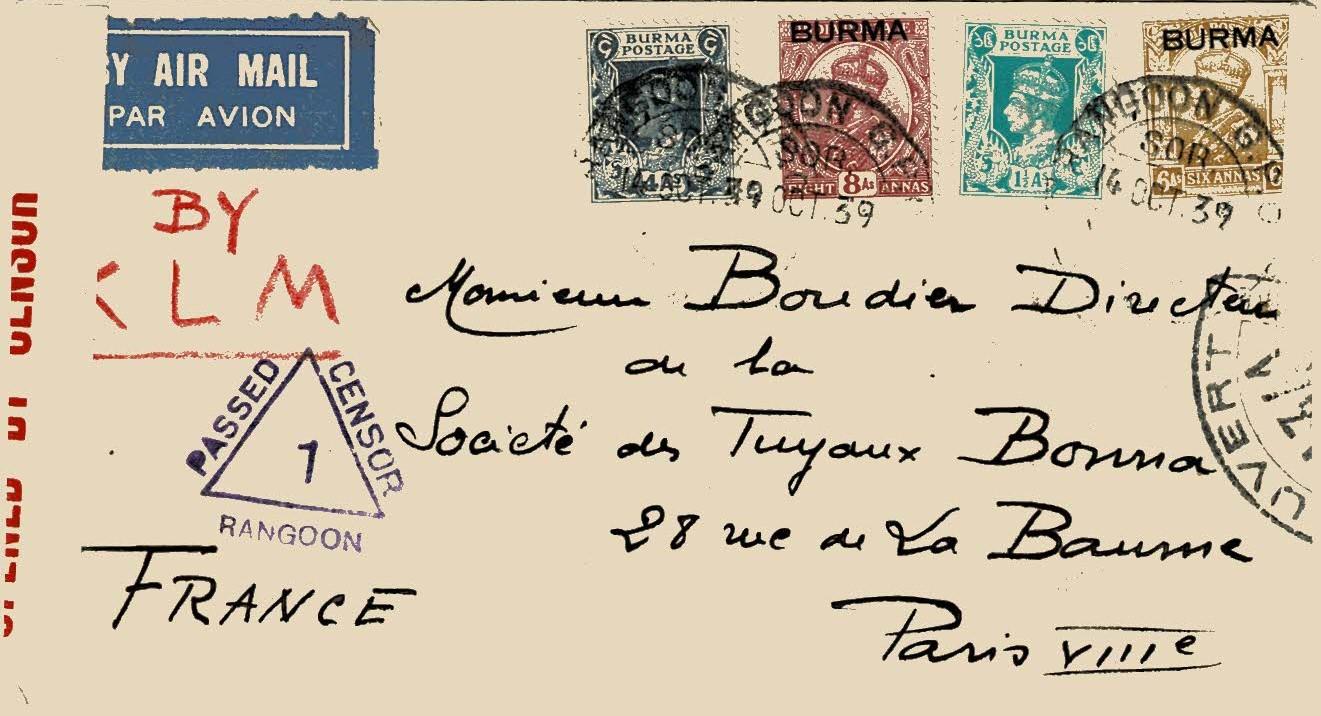 BY AIR MAIL
PAR AVION
BURMA
POSTAGE
BURMA
EIGHT 8 As ANNAS
BURMA
POSTAGE
1½ As
BURMA
6 As SIX ANNAS
RANGOON G.P.O
SOR
14 OCT. 39
RANGOON G.P.O
SOR
14 OCT. 39
RANGOON G.P.O
SOR
14 OCT. 39
BY
KLM
OPENED BY CENSOR
PASSED CENSOR
1
RANGOON
Monsieur Bourdier Directeur
de la
Société des Tuyaux Bonna
28 rue de La Baume
Paris VIIIe
FRANCE
UVERT